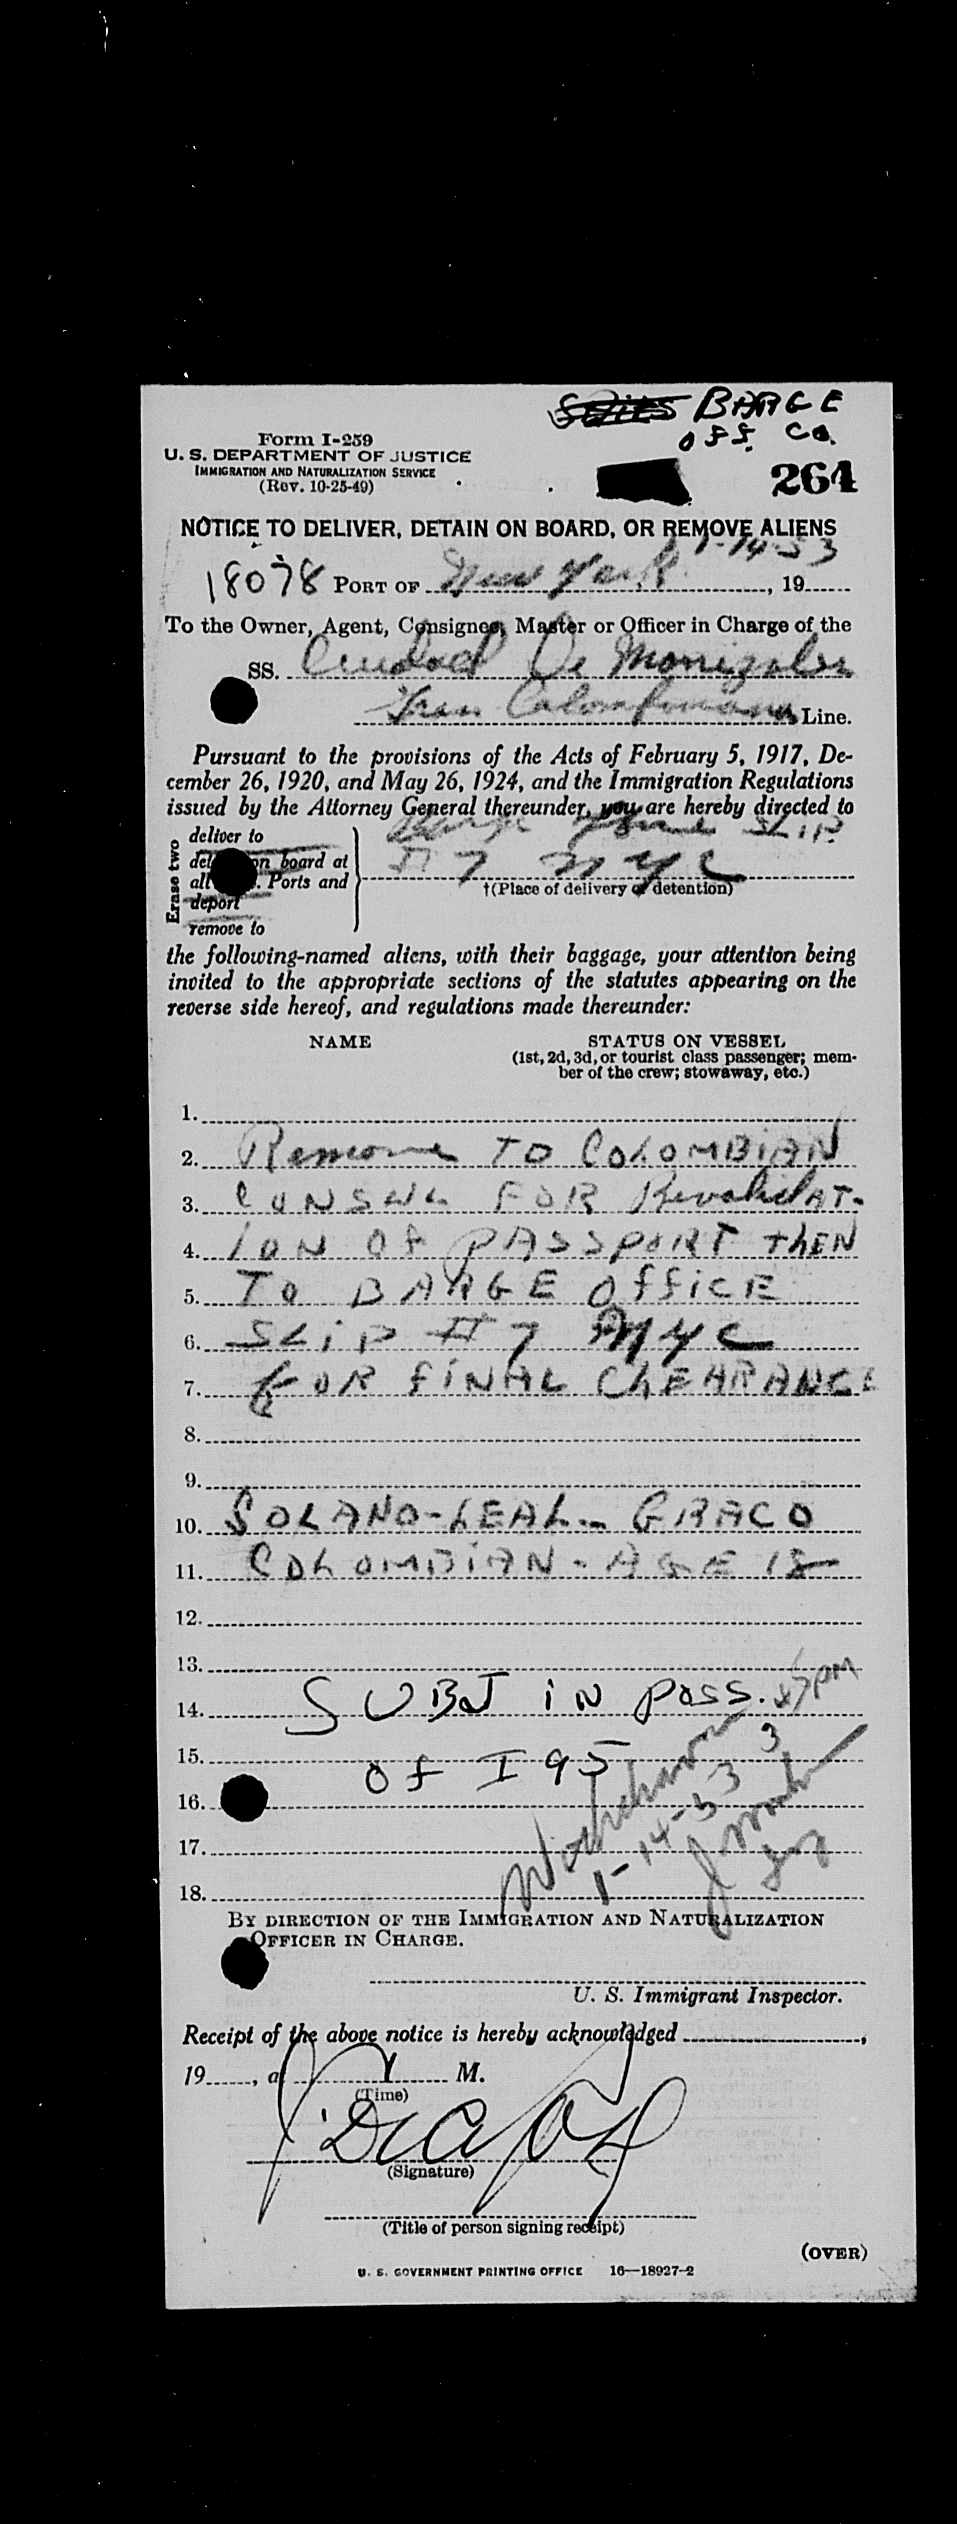 BARGE
OFF. CO.
Form I-259
U. S. DEPARTMENT OF JUSTICE
IMMIGRATION AND NATURALIZATION SERVICE
(Rev. 10-25-49)
264
NOTICE TO DELIVER, DETAIN ON BOARD, OR REMOVE ALIENS
1-14-53
18078 PORT OF New York, 19
To the Owner, Agent, Consignee, Master or Officer in Charge of the
SS. Ciudad De Manizales
Gran Colombiana Line.
Pursuant to the provisions of the Acts of February 5, 1917, De-
cember 26, 1920, and May 26, 1924, and the Immigration Regulations
issued by the Attorney General thereunder, you are hereby directed to
Erase two
deliver to
on board at
all Ports and
deport
remove to
Slip
#7 NYC
†(Place of delivery or detention)
the following-named aliens, with their baggage, your attention being
invited to the appropriate sections of the statutes appearing on the
reverse side hereof, and regulations made thereunder:
NAME STATUS ON VESSEL
(1st, 2d, 3d, or tourist class passenger; mem-
ber of the crew; stowaway, etc.)
1.
2. Remove TO COLOMBIAN
3. CONSUL FOR RevalidAT-
4. ION OF PASSPORT THEN
5. TO BARGE OFFICE
6. SLIP #7 NYC
7. FOR FINAL CLEARANCE
8.
9.
10. SOLANO-LEAL - GRACO
11. COLOMBIAN - AGE 18
12.
13.
14. SUBJ IN POSS.
15.
16. OF I 95
1-14-53
17.
18.
BY DIRECTION OF THE IMMIGRATION AND NATURALIZATION
OFFICER IN CHARGE.
U. S. Immigrant Inspector.
Receipt of the above notice is hereby acknowledged ,
19 , at M.
(Time)
(Signature)
(Title of person signing receipt)
(OVER)
U. S. GOVERNMENT PRINTING OFFICE 16—18927-2